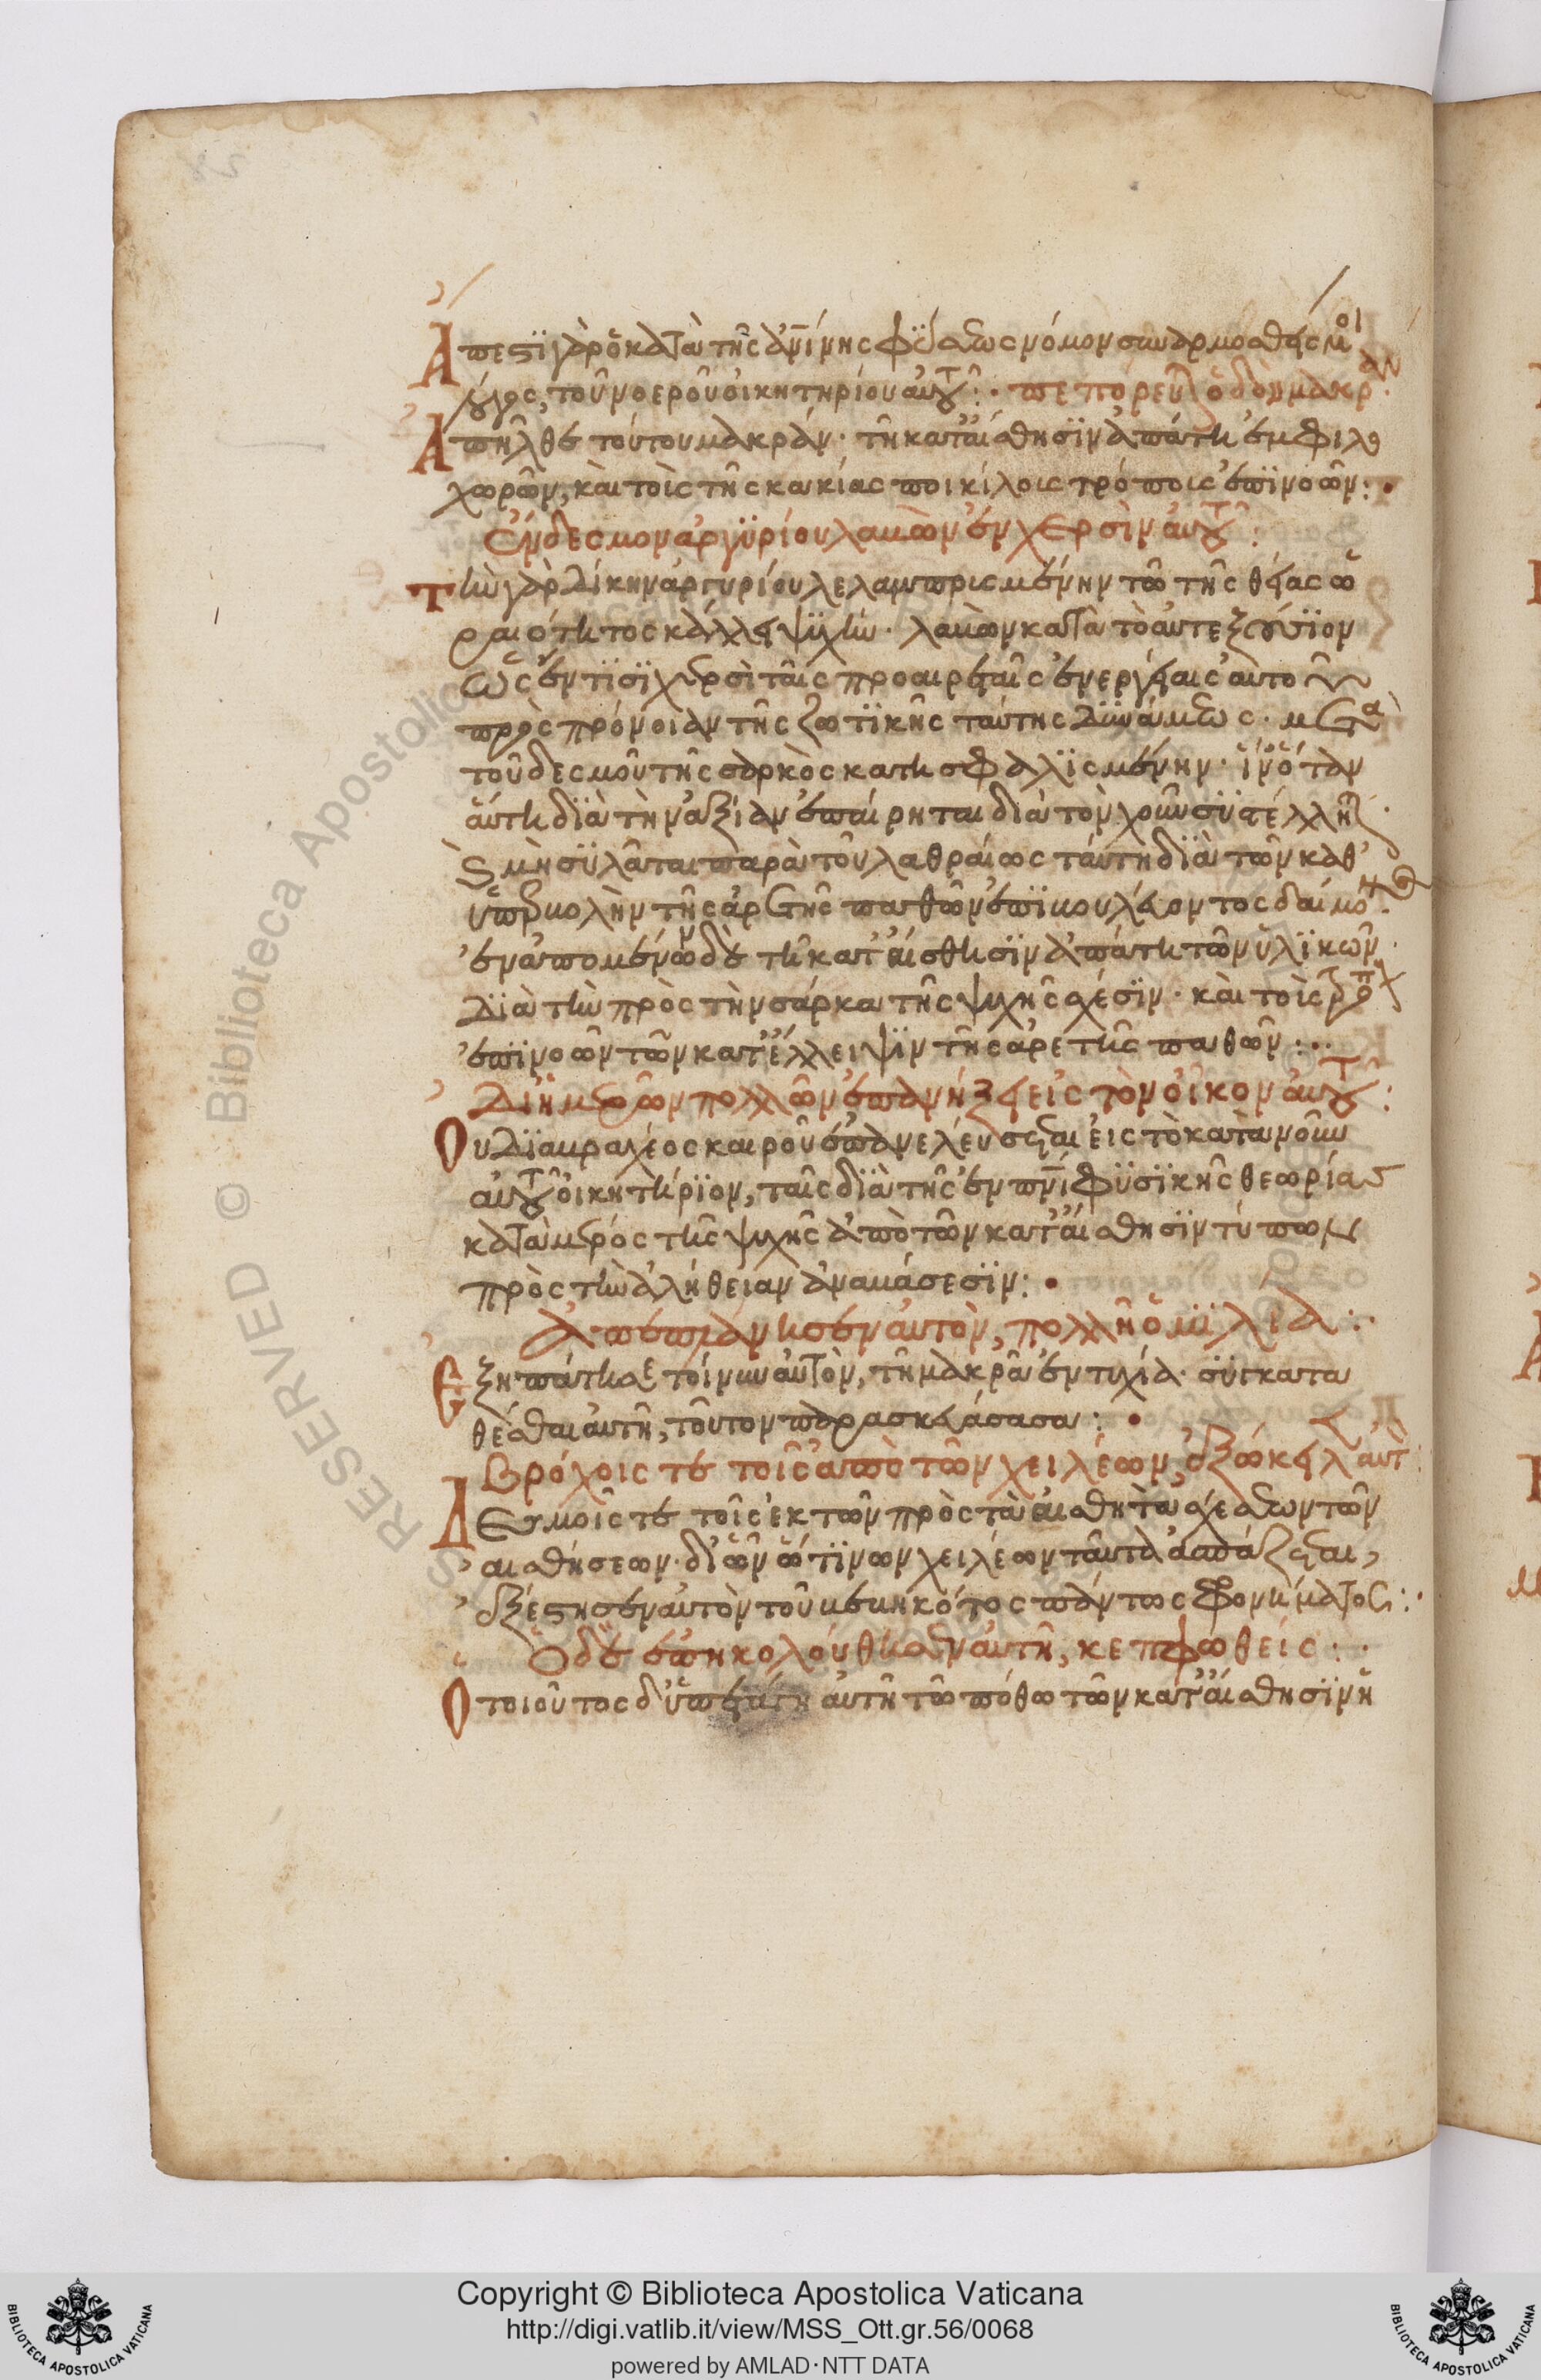 Ἄπεστι γὰρ ὁ κατὰ τῆς ἀντικειμένης φύσεως νόμον συναρμοσθείς μοι
λόγος, τοῦ νοεροῦ οἰκητηρίου αὐτοῦ: πεπόρευται ὁδὸν μακράν
Ἀπῆλθε τούτου μακράν· τῆ κατ' αἴσθησιν ἀπάτη ἐμφιλο
χωρῶν, καὶ τοῖς τῆς κακίας ποικίλοις τρόποις ἐπινοῶν:
Ἔνδεσμον ἀργυρίου λαβὼν ἐν χερσὶν αὐτοῦ:
Τὴν γὰρ δίκην ἀργυρίου λελαμπρισμένην τῶ τῆς θείας ὡ
ραιότητος κάλλει ψυχήν· λαβὼν κατὰ τὸ αὐτεξούσιον
ὡς ἔν τισι χερσὶ ταῖς προαιρετικαῖς ἐνεργείαις αὐτοῦ
πρὸς πρόνοιαν τῆς ζωτικῆς ταύτης δυνάμεως· μετὰ
τοῦ δεσμοῦ τῆς σαρκὸς κατησφαλισμένην· ἵν' ὅταν
αὕτη διὰ τὴν ἀξίαν ἐπαίρηται διὰ τὸν χοῦν συστέλληται·
καὶ μὴ συλᾶται παρὰ τοῦ λαθραίως ταύτη διὰ τῶν καθ'
ὑπερβολὴν τῆς ἀρετῆς παθῶν ἐπιβουλεύοντος δαίμονος·
ἐναπομένων δὲ τῆ κατ' αἴσθησιν ἀπάτη τῶν ὑλικῶν·
διὰ τὴν πρὸς τὴν σάρκα τῆς ψυχῆς σχέσιν· καὶ τοῖς τρόποις
ἐπινοῶν τῶν κατ' ἔλλειψιν τῆς ἀρετῆς παθῶν:
Δι' ἡμερῶν πολλῶν ἐπανήξει εἰς τὸν οἶκον αὐτοῦ:
Οὐ διὰ βραχέος καιροῦ ἐπανελεύσεται εἰς τὸ κατὰ νοῦν
αὐτοῦ οἰκητήριον, ταῖς διὰ τῆς ἐν πνεύματι φυσικῆς θεωρίας
κατὰ μέρος τῆς ψυχῆς ἀπὸ τῶν κατ' αἴσθησιν τύπων
πρὸς τὴν ἀλήθειαν ἀναβάσεσιν:
Ἀπεπλάνησεν αὐτὸν, πολλῆ ὁμιλία:
Ἐξηπάτησε τοίνυν αὐτὸν, τῆ μακρᾶ ἐντυχία· συγκατα
θέσθαι αὐτῆ, τοῦτον παρασκευάσασα:
Βρόχοις τε τοῖς ἀπὸ τῶν χειλέων, ἐξώκειλ αὐτ:
Δεσμοῖς τε τοῖς ἐκ τῶν πρὸς τὰ αἰσθητὰ σχέσεων τῶν
αἰσθήσεων· δι' ὧν ὥς τινων χειλέων ταῦτα ἀσπάζεται,
ἐξέστησεν αὐτὸν τοῦ βεβηκότος πάντως φρονήματος:
Ὁ δὲ ἐπηκολούθησεν αὐτῆ, κεπφωθείς:
Ὁ τοιοῦτος δ' ὑπείχθη αὐτῆ τῶ πόθω τῶν κατ' αἴσθησιν ἡ
Copyright © Biblioteca Apostolica Vaticana
http://digi.vatlib.it/view/MSS_Ott.gr.56/0068
powered by AMLAD·NTT DATA